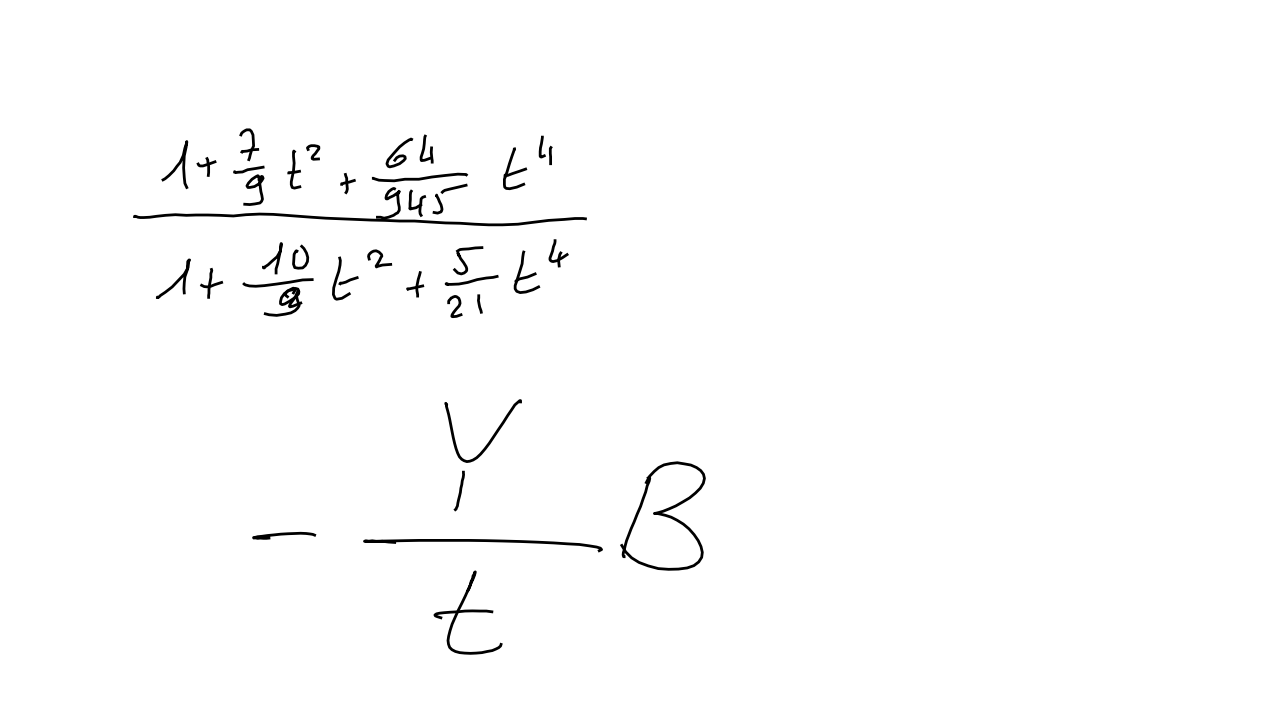 1 + 7/9 t² + 64/945 t⁴
1 + 10/9 t² + 5/21 t⁴
- Y/t B